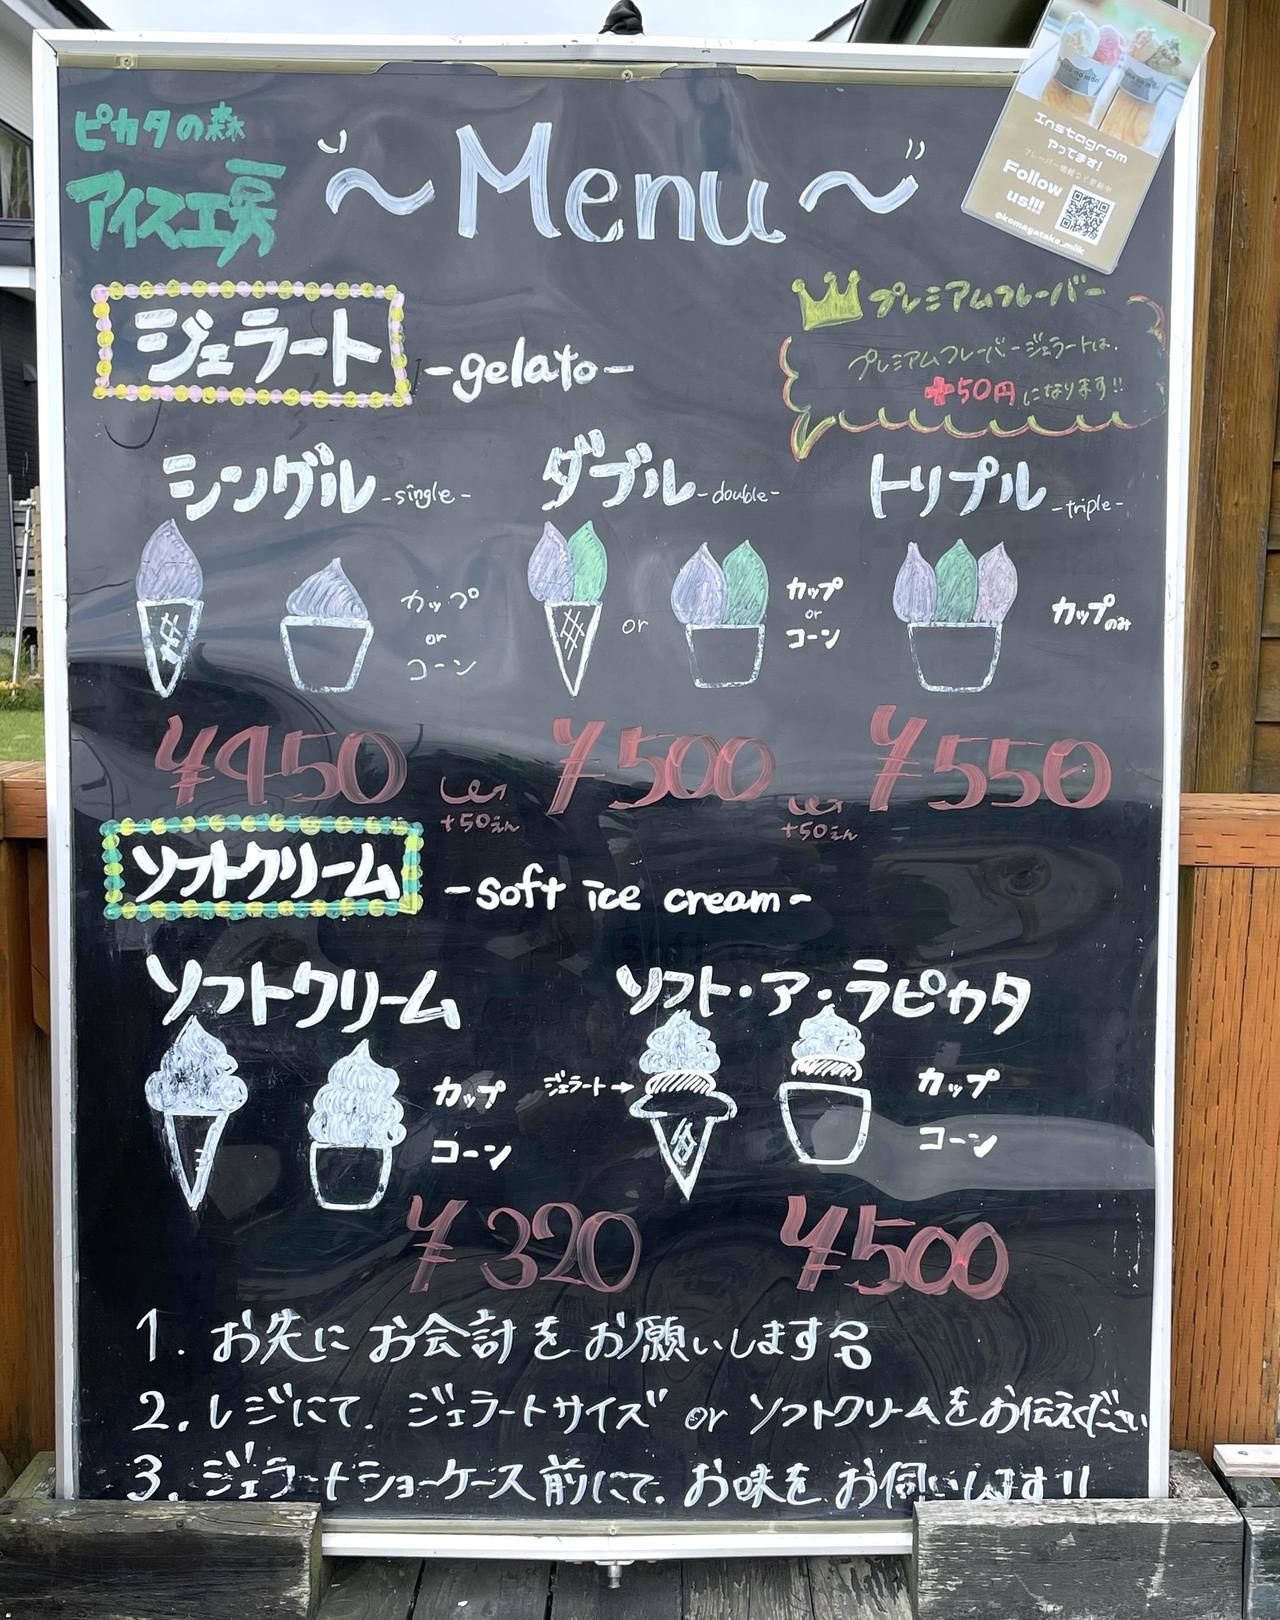 ピカタの森
アイス工房
～Menu～
Instagram
やってます!
Follow
us!!!
@komagatake_milk
ジェラート
-gelato-
プレミアムフレーバー
プレミアムフレーバージェラートは、
+50円になります!!
シングル -single-
ダブル -double-
トリプル -triple-
カップ
or
コーン
or
カップ
or
コーン
カップのみ
¥450
+50えん
¥500
+50えん
¥550
ソフトクリーム
-soft ice cream-
ソフトクリーム
カップ
コーン
¥320
ソフト・ア・ラピカタ
ジェラート→
カップ
コーン
¥500
1. お先にお会計をお願いします
2. レジにて、ジェラートサイズ or ソフトクリームをお伝えください
3. ジェラートショーケース前にて、お味をお伺いします!!